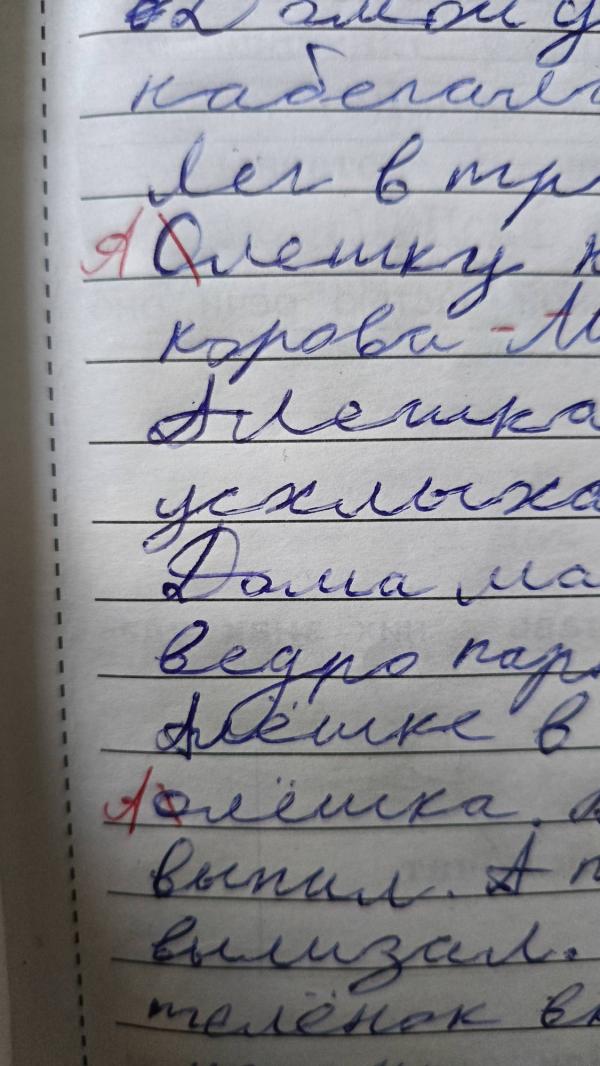 Домой
набегался
лег в тр
А Олешку н
корова - М
Алешка
усхлыха
Дома ма
ведро пар
Алёшке в
А олёшка.
выпил. А п
вылизал.
телёнок вы